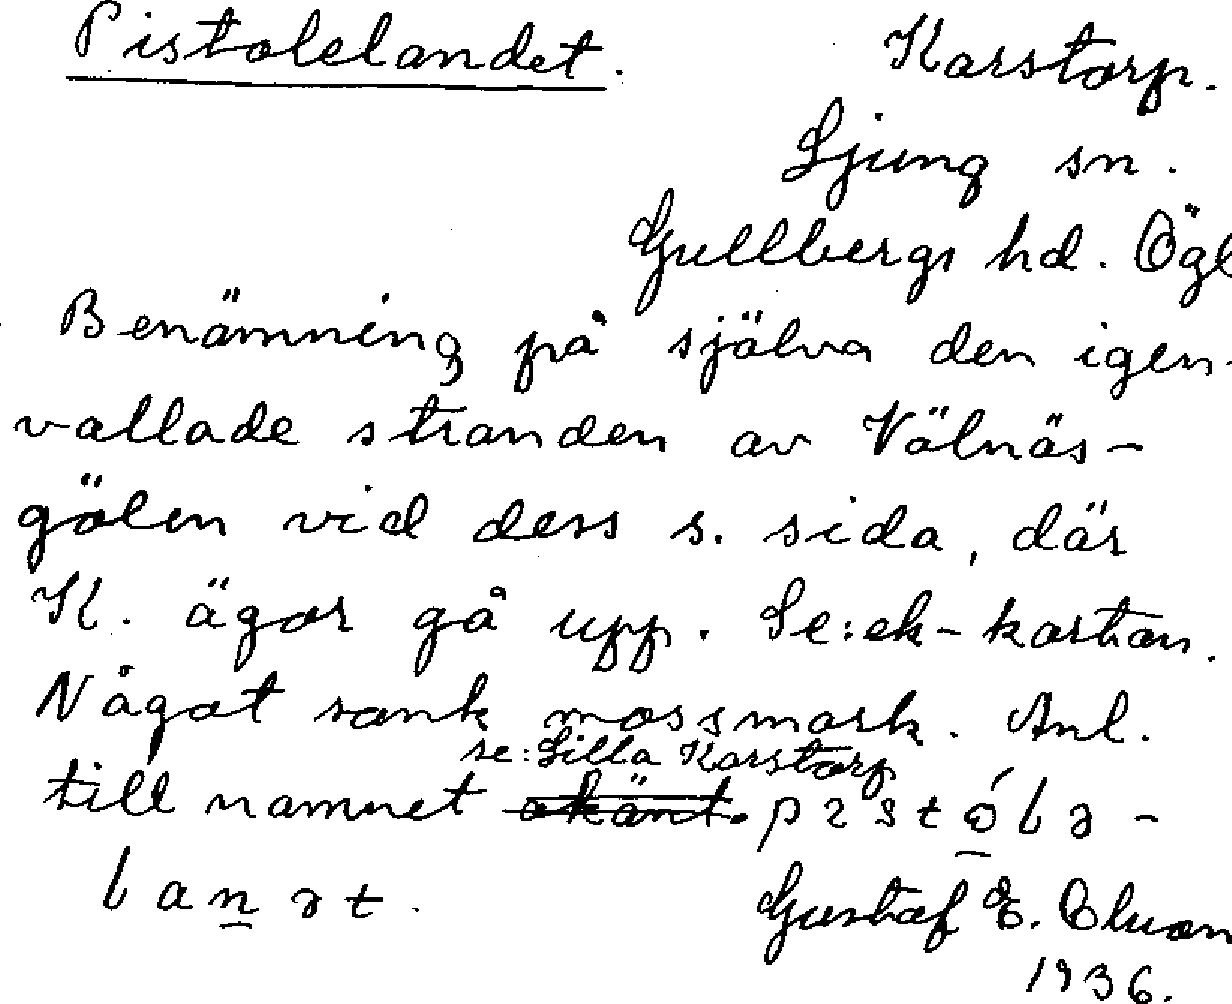 Pistolelandet. Karstorp.
Ljung sn.
Gullbergs hd. Ögl
Benämning på själva den igen-
vallade stranden av Välnäs-
gölen vid dess s. sida, där
K. ägor gå upp. Se: ek-kartan.
Något sank mossmark. Anl.
se: Lilla Karstorp
till namnet okänt. pɿstólə-
lanət.
Gustaf E.
1936.